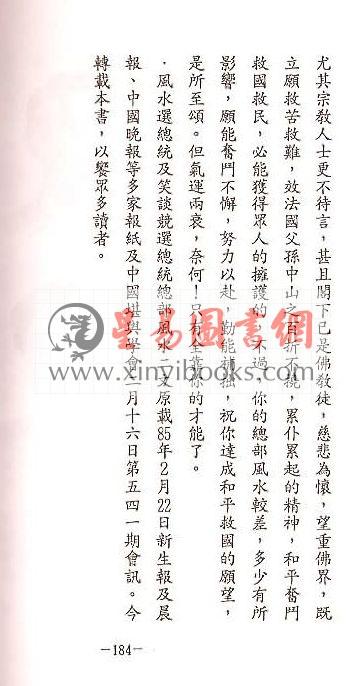 尤其宗教人士更不待言，甚且閣下已是佛教徒，慈悲為懷，望重佛界，既
立願救苦救難，效法國父孫中山之百折不撓，累仆累起的精神，和平奮鬥
救國救民，必能獲得眾人的擁護的，不過，你的總部風水較差，多少有所
影響，願能奮鬥不懈，努力以赴，勤能補拙，祝你達成和平救國的願望，
是所至頌。但氣運兩衰，奈何！只有全靠你的才能了。
．風水選總統及笑談競選總統總部風水一文原載85年2月22日新生報及晨
報、中國晚報等多家報紙及中國堪輿學會二月十六日第五四一期會訊。今
轉載本書，以饗眾多讀者。
星易圖書網
www.xinyibooks.com
－184－